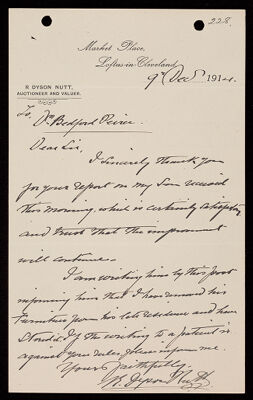 228.
Market Place,
Loftus-in-Cleveland
9th Decr 1914.
R. DYSON NUTT,
AUCTIONEER AND VALUER.
To, Dr Bedford Pierce.
Dear Sir,
I sincerely thank you
for your report on my Son received
this morning, which is certainly satisfactory
and trust that the improvement
will continue.
I am writing him by this post
informing him that I have removed his
Furniture from his late residence and have
stored it. If the writing to a patient is
against your rules please inform me.
Yours faithfully,
R. Dyson Nutt